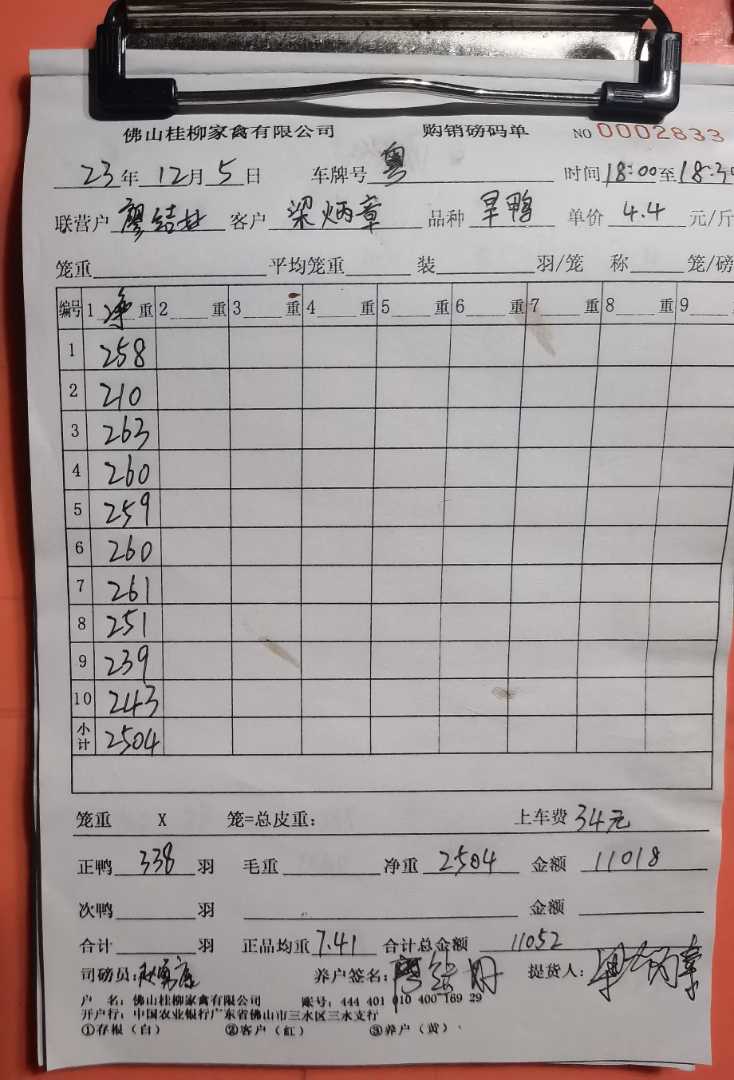 佛山桂柳家禽有限公司 购销磅码单 NO 0002833
23年12月5日 车牌号 粤 时间18:00至18:30
联营户 廖结 客户 梁炳章 品种 旱鸭 单价 4.4 元/斤
笼重 平均笼重 装 羽/笼 称 笼/磅
编号 1 净重 2 重 3 重 4 重 5 重 6 重 7 重 8 重 9
1 258
2 210
3 263
4 260
5 259
6 260
7 261
8 251
9 239
10 243
小计 2504
笼重 X 笼=总皮重: 上车费 34元
正鸭 338 羽 毛重 净重 2504 金额 11018
次鸭 羽 金额
合计 羽 正品均重 7.41 合计总金额 11052
司磅员: 养户签名: 廖结 提货人: 梁炳章
户 名: 佛山桂柳家禽有限公司 账号: 444 401 010 400 169 29
开户行: 中国农业银行广东省佛山市三水区三水支行
①存根(白) ②客户(红) ③养户(黄)